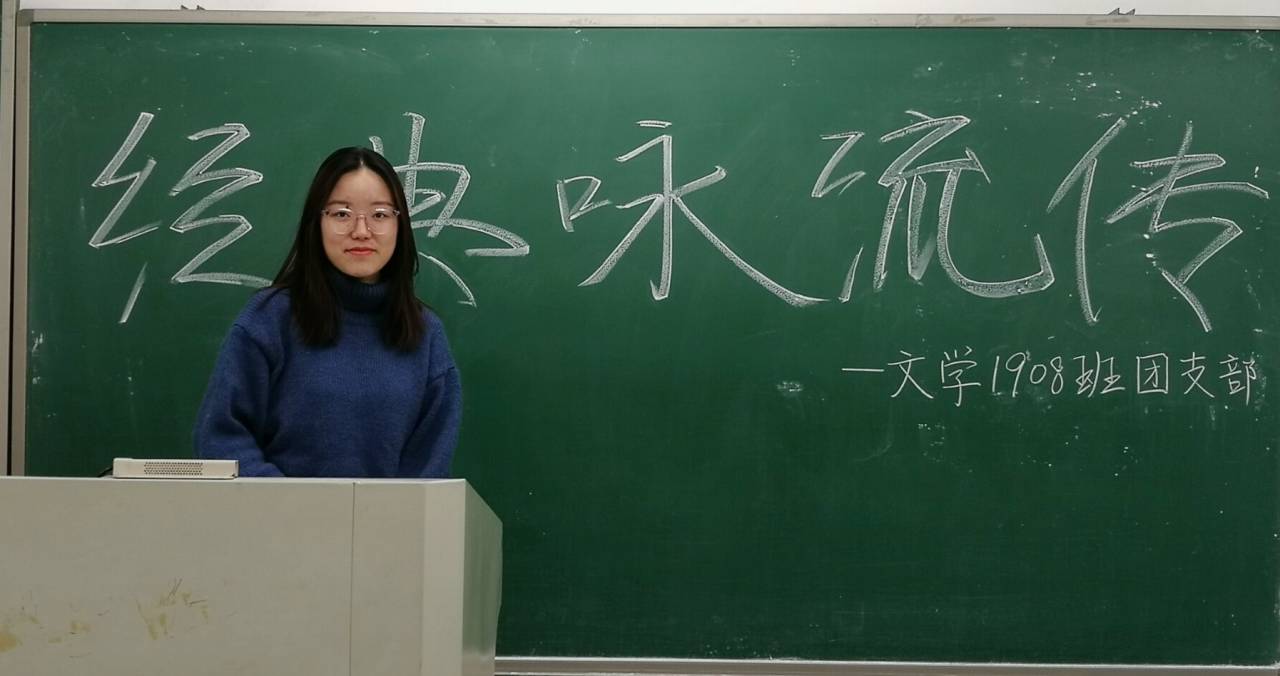 经典咏流传
—文学1908班团支部